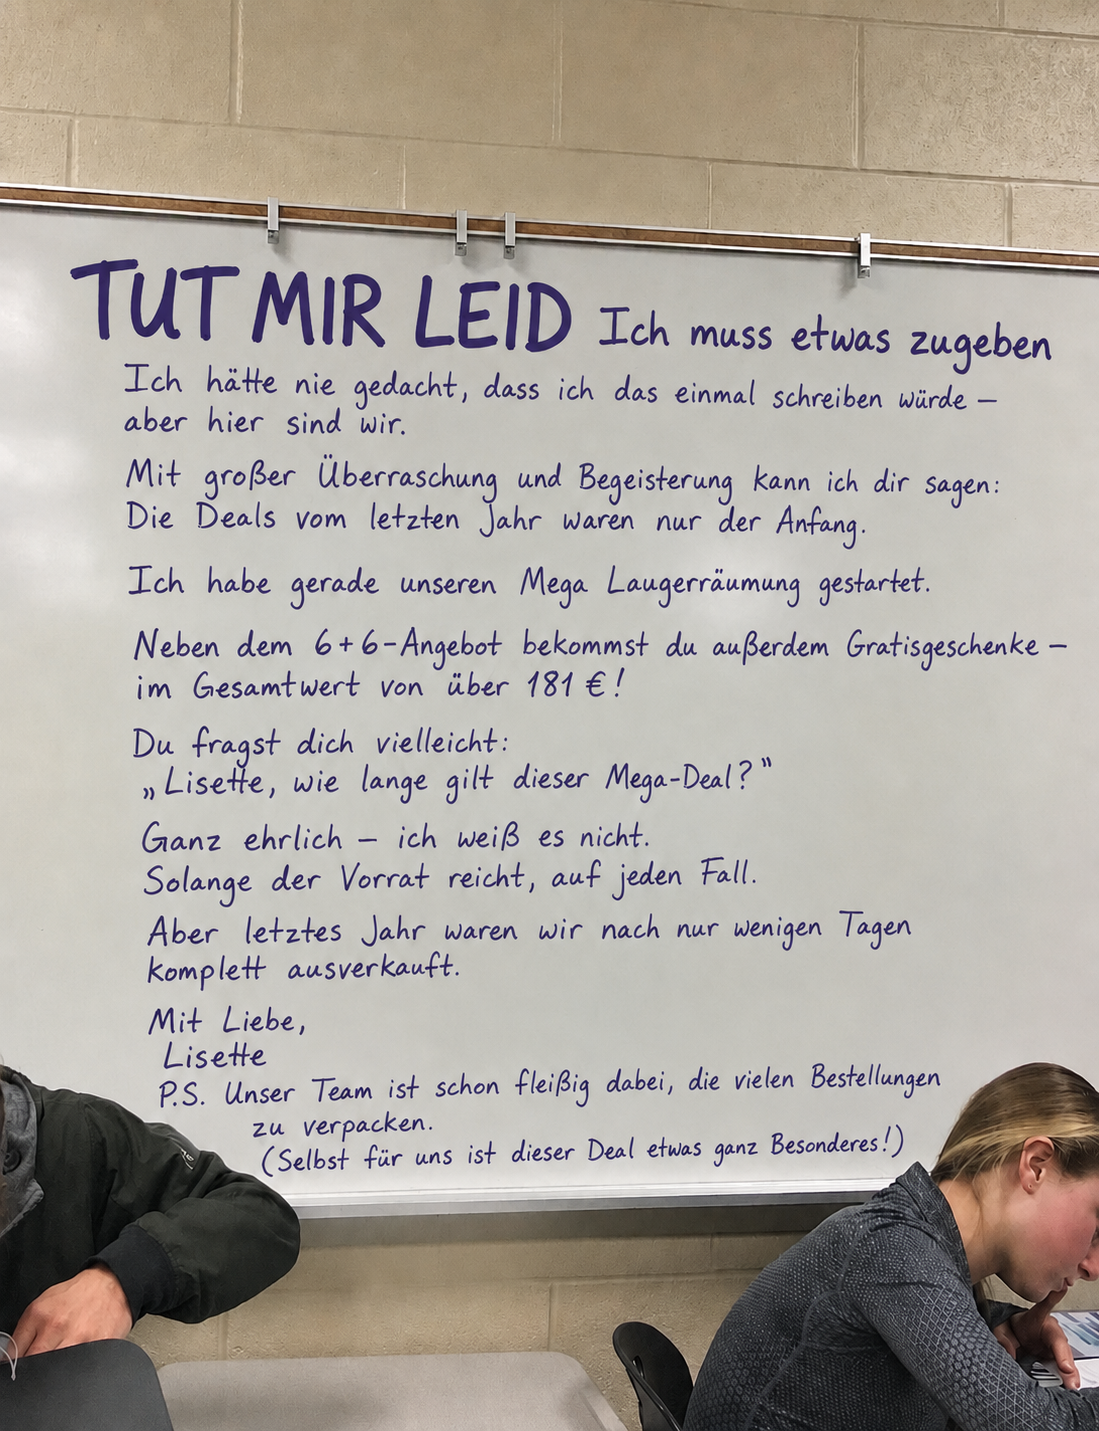 TUT MIR LEID Ich muss etwas zugeben
Ich hätte nie gedacht, dass ich das einmal schreiben würde –
aber hier sind wir.
Mit großer Überraschung und Begeisterung kann ich dir sagen:
Die Deals vom letzten Jahr waren nur der Anfang.
Ich habe gerade unseren Mega Laugerräumung gestartet.
Neben dem 6+6-Angebot bekommst du außerdem Gratisgeschenke –
im Gesamtwert von über 181 €!
Du fragst dich vielleicht:
„Lisette, wie lange gilt dieser Mega-Deal?"
Ganz ehrlich – ich weiß es nicht.
Solange der Vorrat reicht, auf jeden Fall.
Aber letztes Jahr waren wir nach nur wenigen Tagen
komplett ausverkauft.
Mit Liebe,
Lisette
P.S. Unser Team ist schon fleißig dabei, die vielen Bestellungen
zu verpacken.
(Selbst für uns ist dieser Deal etwas ganz Besonderes!)